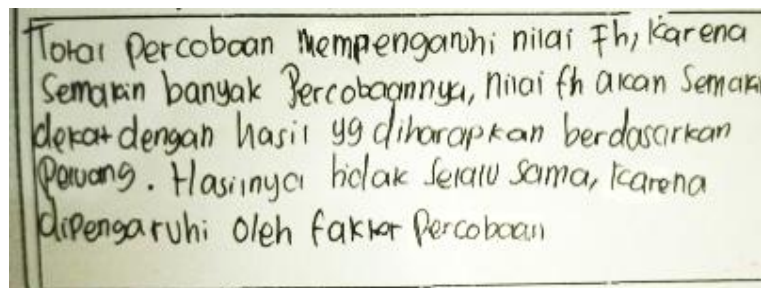 Total percobaan Mempengaruhi nilai Fh, karena
Semakin banyak Percobaannya, Nilai fh akan Semaki
dekat dengan hasil yg diharapkan berdasarkan
Peluang. Hasilnya tidak Selalu sama, karena
dipengaruhi oleh faktor Percobaan